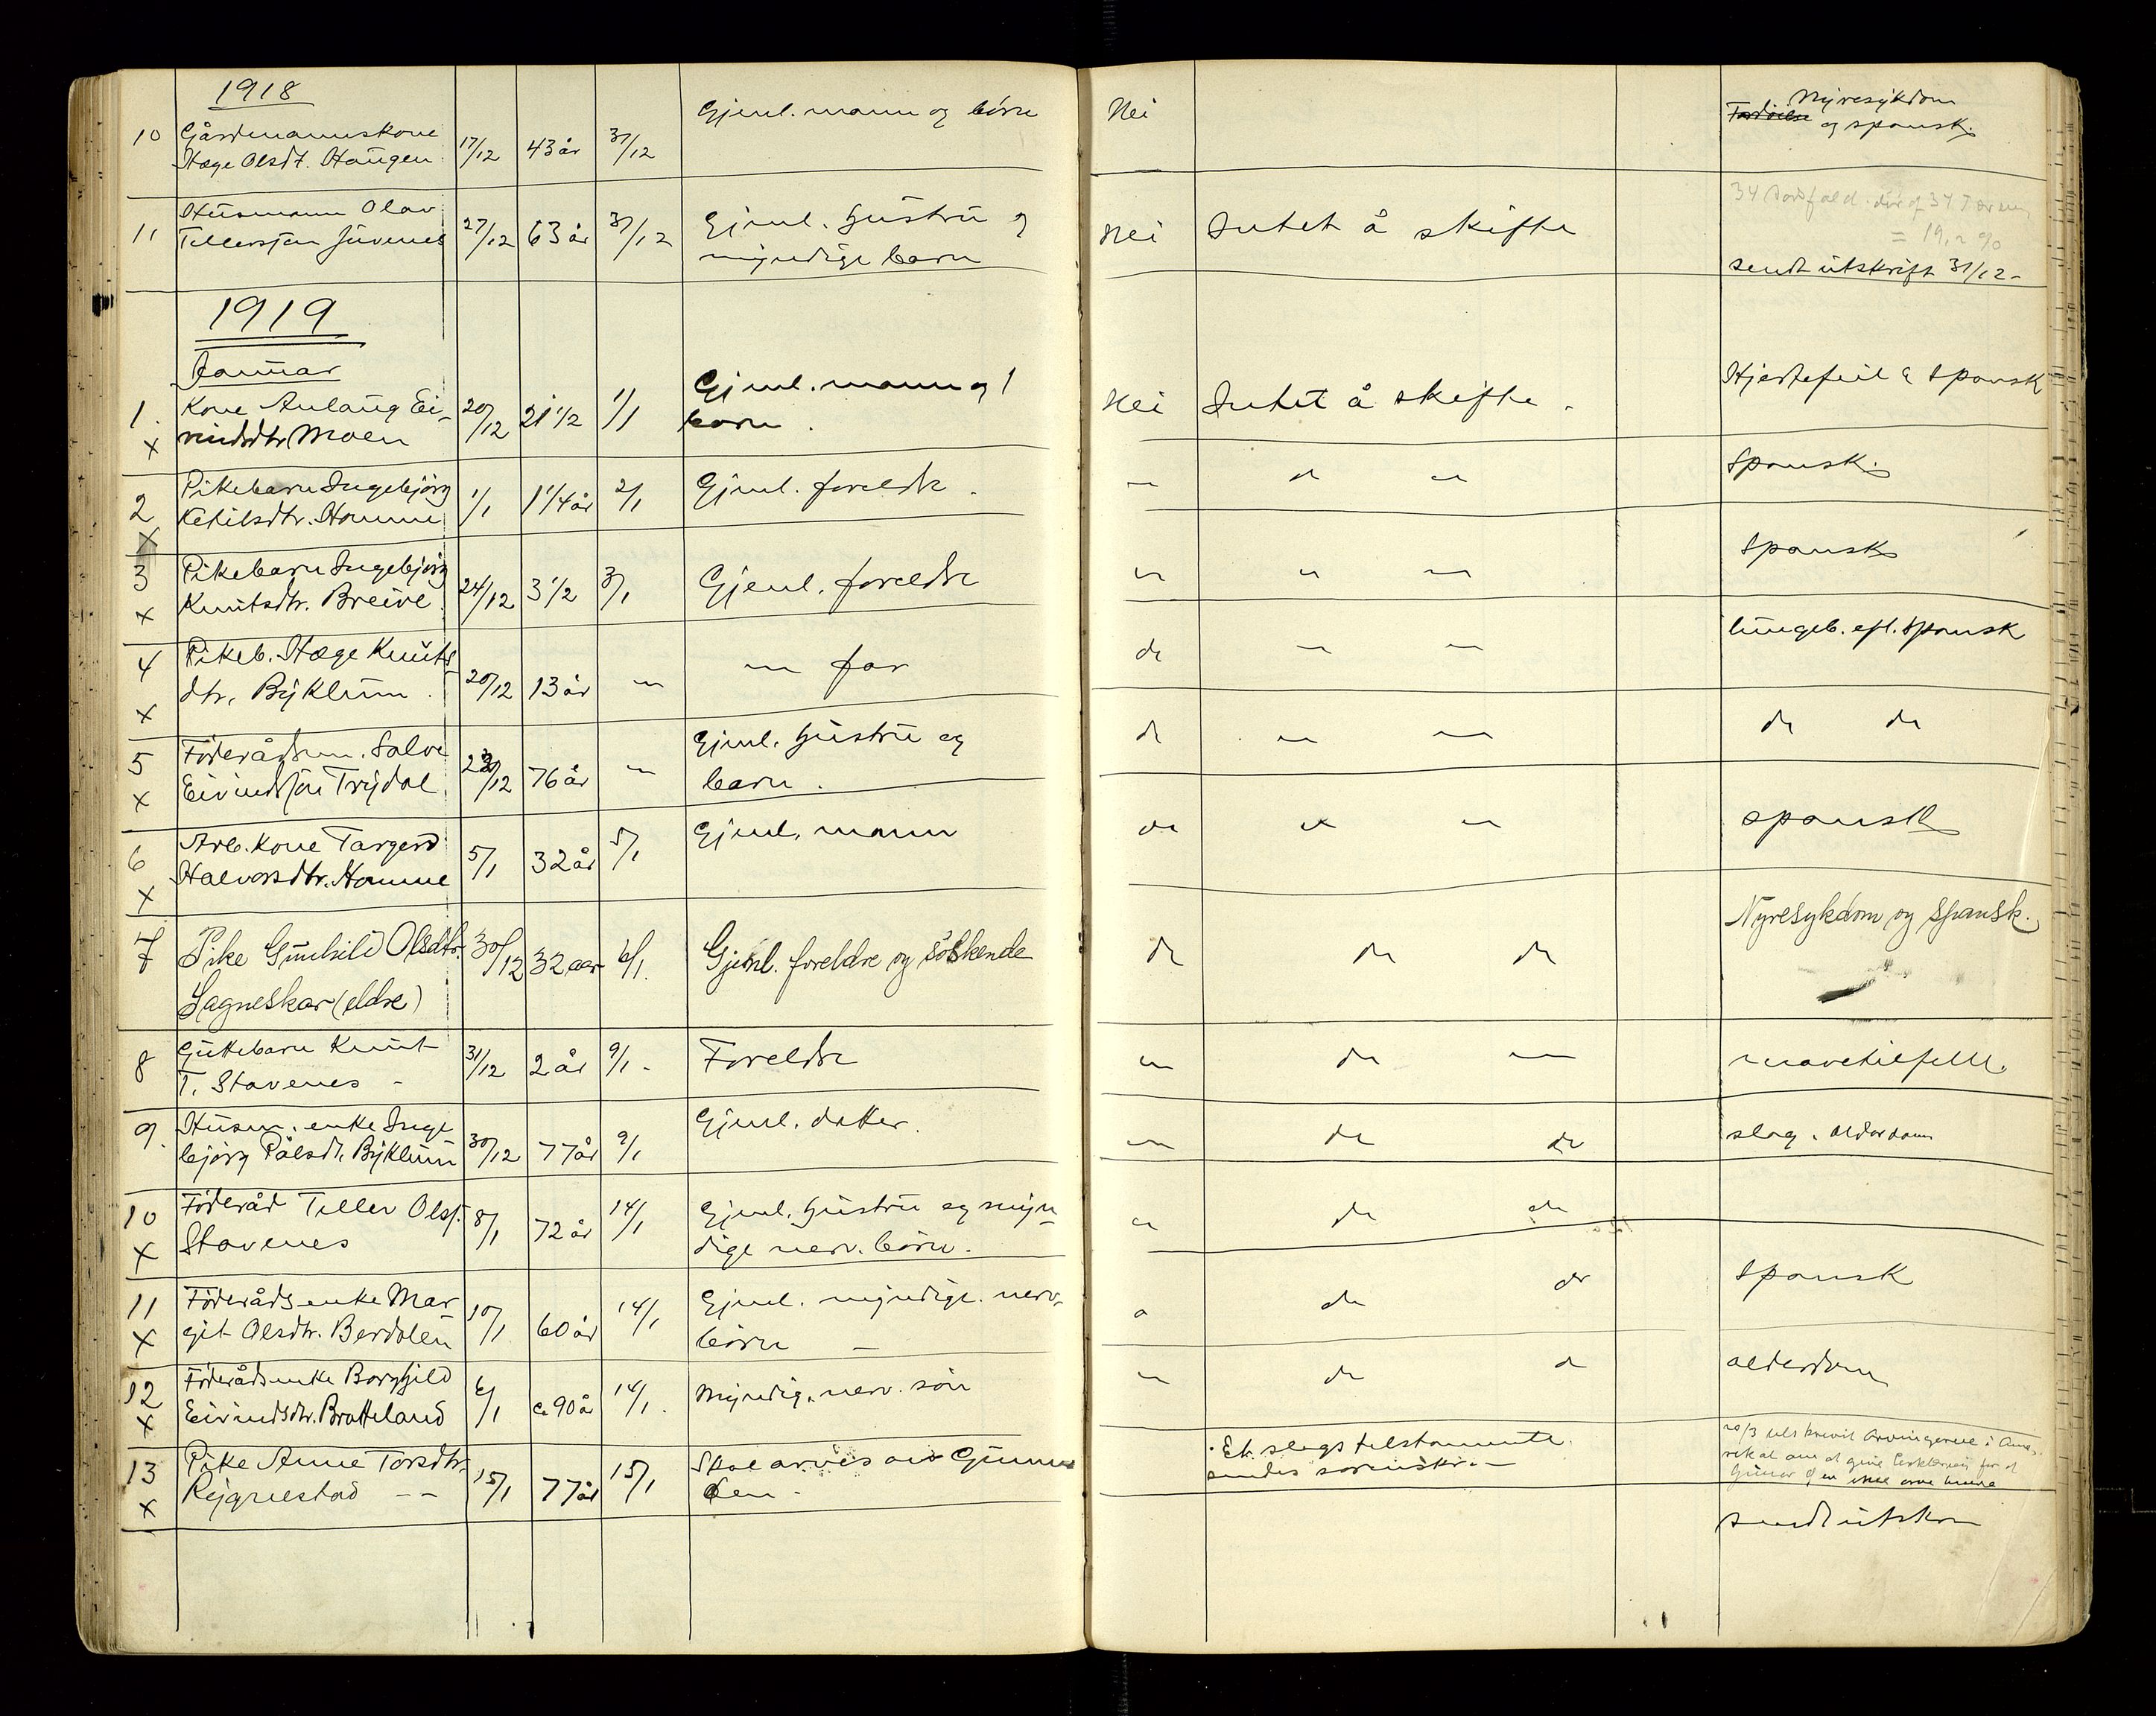 1918
10 Gårdmannskone
Hæge Olsdt. Haugen 17/12 43 år 31/12 Gjenl. mann og börn Nei Nyresykdom
og spansk.
11 Husmann Olav
Tellefsjen Juvenes 27/12 63 år 31/12 Gjenl. hustru og
myndige barn Nei Intet å skifte
= 19,2 %
sendt utskrift 31/12 -
1919
Januar
1. Kone Aulaug Ei-
x vindsdtr Moen 20/12 21 1/2 1/1 Gjenl. mann og 1
barn. Nei Intet å skifte. Hjertefeil & Spansk
2 Pikebarn Ingebjörg
x Ketilsdtr. Homme 1/1 1 1/4 år 2/1 Gjenl. foreldre. — " — " — Spansk.
3 Pikebarn Ingebjörg
x Knutsdtr. Breive 24/12 3 1/2 3/1 Gjenl. foreldre " " " Spansk
4 Pikeb. Hæge Knuts
x dtr. Byklum. 20/12 13 år — " — — " — far do — " — — " — lungeb. eft. Spansk
5 Föderådsm. Salve
x Eivindsjon Trydal /12 76 år — " — Gjenl. hustru og
barn. do — " — — " — do do
6 Arb. kone Targerd
x Halvorsdtr. Homme 5/1 32 år 5/1 Gjenl. mann do " " spansk
7 Pike Gunhild Olsdtr. 30/12 32 aar 6/1. Gjenl. foreldre og söskende do do do Nyresykdom og Spansk.
Lagneskar (eldre)
8 Guttebarn Knut
T. Stavenes - 31/12 2 år 9/1 - Foreldre " do — " — mavetilfelle.
9. Husm. enke Inge
björg Pålsdt. Byklum 30/12 77 år 9/1 Gjenl. datter. " do do slag, Alderdom
10 Föderåd Tellev Olsf.
x Stavenes 8/1 72 år 14/1 Gjenl. hustru og myn-
dige nerv. börn. " do do
11 Föderådsenke Mar
x git Olsdtr. Berdalen 10/1 60 år 14/1 Gjenl. myndige nerv.
börn — " do do Spansk
12 Föderådsenke Borghild
x Eivindsdtr. Bratteland 6/1 ca 90 år 14/1. Myndig. nerv. sön " do do alderdom
13 Pike Anne Torsdtr.
x Rygnestad - - 15/1 77 år 15/1 Skal arves av Gunnar
· Et slags testamente
sendes sorenskr. —
20/3 arvingerne i Ame-
rika om at give for at
Gunnar
sendt utskr